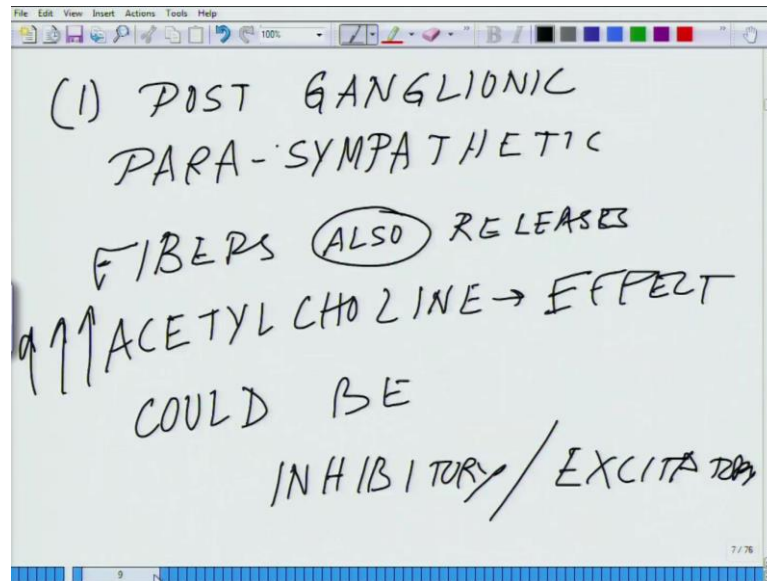 File Edit View Insert Actions Tools Help
100%
B I
(1) POST GANGLIONIC
PARA-SYMPATHETIC
FIBERS ALSO RELEASES
↑↑↑ ACETYLCHOLINE → EFFECT
COULD BE
INHIBITORY/EXCITATORY
7/76
9